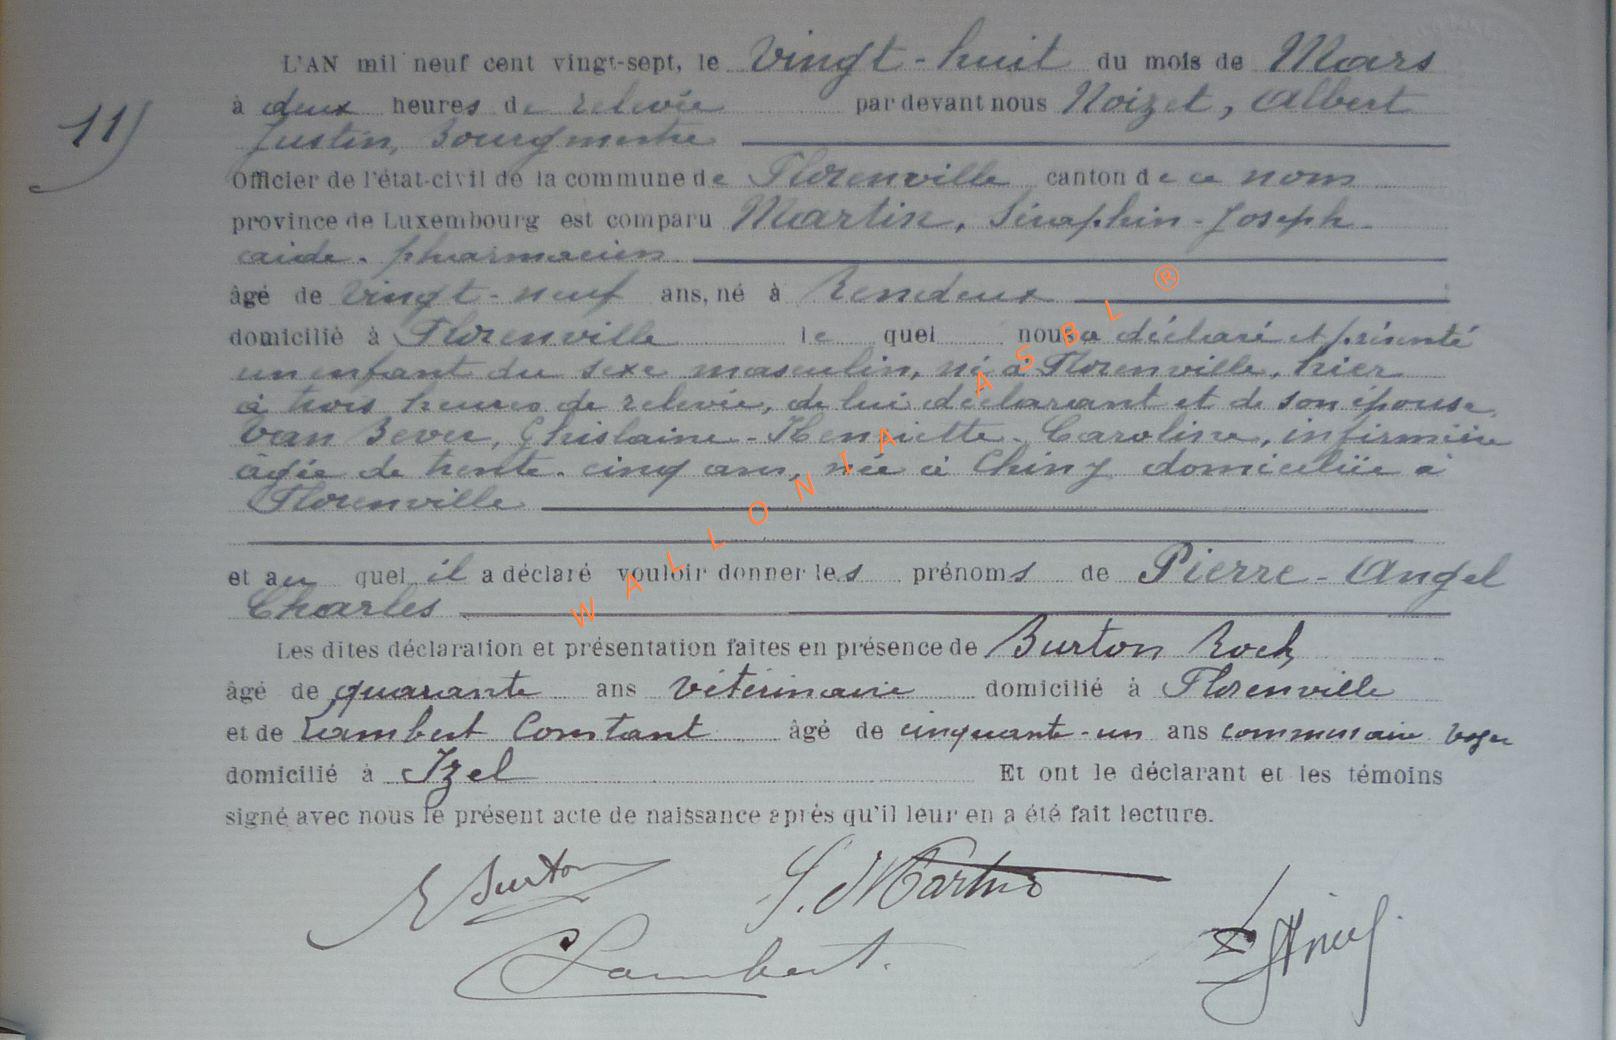 L'AN mil neuf cent vingt-sept, le Vingt-huit du mois de Mars
11)
à deux heures de relevée par devant nous Noizet, Albert
Justin, Bourgmestre
Officier de l'état-civil de la commune de Florenville canton de ce nom
province de Luxembourg est comparu Martin, Séraphin-Joseph
aide-pharmacien
âgé de Vingt-neuf ans, né à Rendeux
domicilié à Florenville le quel nous a déclaré et présenté
un enfant du sexe masculin, né à Florenville, hier
à trois heures de relevée, de lui déclarant et de son épouse
Van Bever, Ghislaine-Henriette-Caroline, infirmière
âgée de trente-cinq ans, née à Chiny domiciliée à
Florenville
et au quel il a déclaré vouloir donner les prénoms de Pierre-Angel
Charles
Les dites déclaration et présentation faites en présence de Burton Roch
âgé de quarante ans vétérinaire domicilié à Florenville
et de Lambert Constant âgé de cinquante-un ans commissaire voyer
domicilié à Izel Et ont le déclarant et les témoins
signé avec nous le présent acte de naissance après qu'il leur en a été fait lecture.
Burton S. Martin
Lambert
WALLONIA ASBL ®